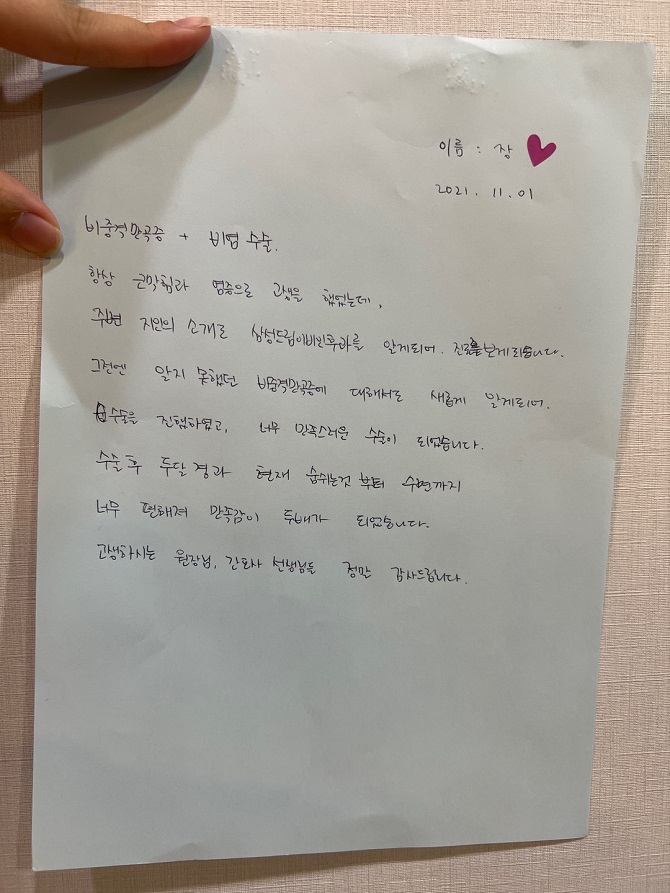 이름 : 장
2021. 11. 01
비중격만곡증 + 비염 수술.
항상 코막힘과 염증으로 고생을 했었는데,
주변 지인의 소개로 삼성드림이비인후과를 알게되어. 진료를 보게되었습니다.
그전엔 알지 못했던 비중격만곡증에 대해서도 새롭게 알게되어.
수술을 진행하였고, 너무 만족스러운 수술이 되었습니다.
수술 후 두달 경과 현재 숨쉬는것 부터 수면까지
너무 편해져 만족감이 두배가 되었습니다.
고생하시는 원장님, 간호사 선생님들 정말 감사드립니다.